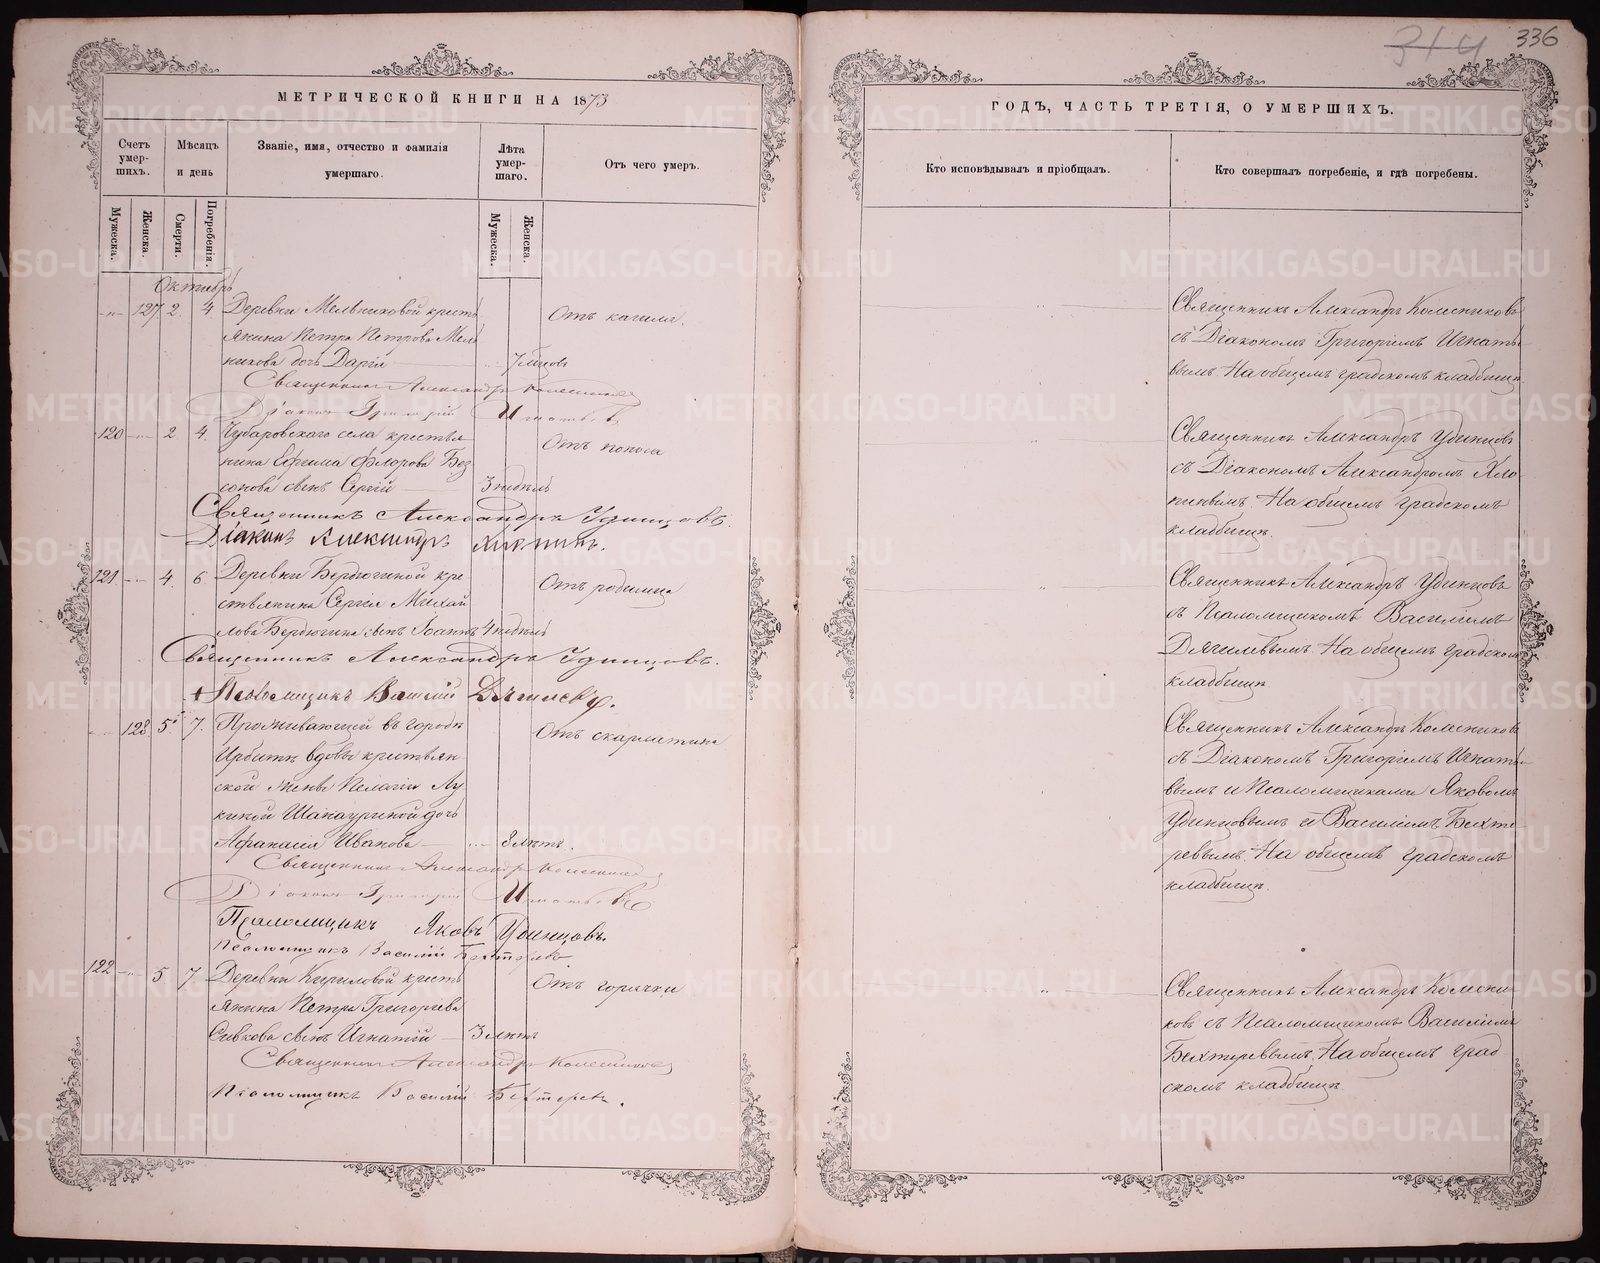 МЕТРИЧЕСКОЙ КНИГИ НА 1873
Счетъ умер-шихъ.
Мѣсяцъ и день
Званіе, имя, отчество и фамилія умершаго.
Лѣта умер-шаго.
Отъ чего умеръ.
Мужеска.
Женска.
Смерти.
Погребенія.
Мужеска.
Женска.
Октябрь
127 2 4 Деревни Мельниковой кресть
янина Петра Петрова Мель
никова дочь Дарія
Отъ кашля.
Священникъ Александръ Колесниковъ
Діаконъ Григорій Игнатьевъ
120 2 4 Чубаровскаго села крестья
нина Ефима Флорова Без
сонова сынъ Сергій 3 недѣль
Отъ поноса
Священникъ Александръ Удинцовъ.
Діаконъ Александръ Хлопинъ.
121 4 6 Деревни Бердюгиной кре
стьянина Сергія Михай
лова Бердюгина сынъ Іоаннъ 4 недѣль
Отъ родимца
Священникъ Александръ Удинцовъ.
Псаломщикъ Василій Дягилевъ.
128 5 7 Проживающей въ городѣ
Ирбитѣ вдовы крестьян
ской жены Пелагіи Лу
киной Шанауриной дочь
Афанасія Иванова 8 лѣтъ.
Отъ скарлатины
Священникъ Александръ Колесниковъ
Діаконъ Григорій Игнатьевъ
Псаломщикъ Яковъ Удинцовъ.
Псаломщикъ Василій Бехтеревъ
122 5 7 Деревни Кириловой кресть
янина Петра Григорьева
Сивкова сынъ Игнатій 3 лѣтъ
Отъ горячки
Священникъ Александръ Колесниковъ
Псаломщикъ Василій Бехтеревъ.
314 336
ГОДЪ, ЧАСТЬ ТРЕТІЯ, О УМЕРШИХЪ.
Кто исповѣдывалъ и пріобщалъ.
Кто совершалъ погребеніе, и гдѣ погребены.
Священникъ Александръ Колесниковъ
съ Діакономъ Григоріемъ Игнать
вымъ На общемъ градскомъ кладбищѣ
Священникъ Александръ Удинцовъ
съ Діакономъ Александромъ Хло-
пинымъ. На общемъ градскомъ
кладбищѣ.
Священникъ Александръ Удинцовъ
съ Псаломщикомъ Василіемъ
Дягилевымъ. На общемъ градском
кладбищѣ
Священникъ Александръ Колесниковъ
съ Діакономъ Григоріемъ Игнать-
вымъ и Псаломщиками Яковомъ
Удинцовымъ и Василіемъ Бехте-
ревымъ. На общемъ градскомъ
кладбищѣ.
Священникъ Александръ Колесни-
ковъ съ Псаломщикомъ Василіемъ
Бехтеревымъ. На общемъ град
скомъ кладбищѣ.
METRIKI.GASO-URAL.RU